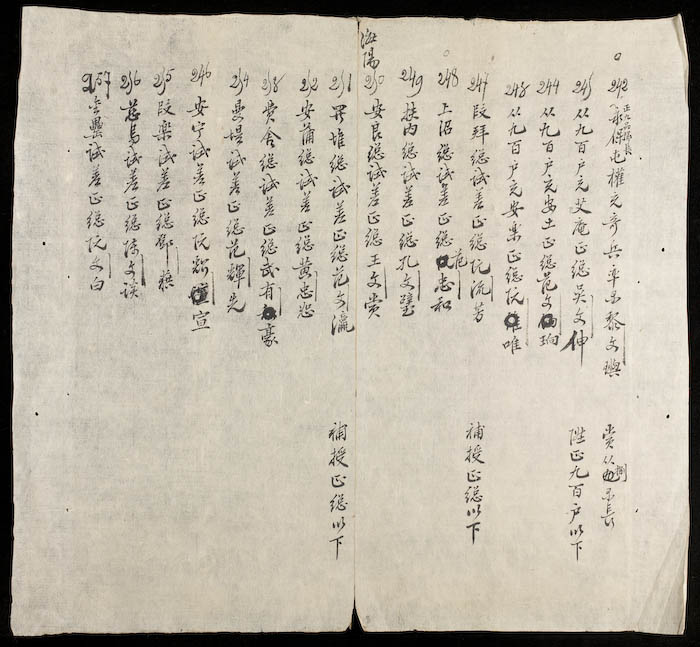 242 正九品隊長
永保屯權充奇兵率隊黎文
賞從捌品隊長
245 从九百户充艾庵正總吳文伸
陞正九百户以下
244 从九百户充安土正總范文珦
248 从九百户充安樂正總阮唯
247 段拜總試差正總阮沅芳
補授正總以下
248 上沼總試差正總范忠和
249 扶内總試差正總孔文璧
海陽
250 安良總試差正總王文赏
251 畀堆總試差正總范文瀛
補授正總以下
252 安蒲總試差正總黄忠恕
258 賞舍總試差正總武有豪
254 曼堤試差正總范輝光
246 安宁試差正總阮宣
255 段樂試差正總鄧
256 慈烏試差正總陳文谟
257 金壘試差正總阮文白